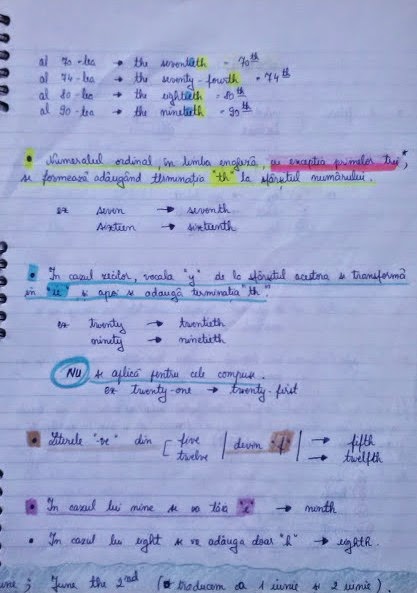 al 70-lea → the seventieth = 70th
al 74-lea → the seventy-fourth = 74th
al 80-lea → the eightieth = 80th
al 90-lea → the ninetieth = 90th
• Numeralul ordinal, în limba engleză, cu excepția primelor trei*,
se formează adăugând terminația "th" la sfârșitul numărului.
ex seven → seventh
sixteen → sixteenth
• În cazul zecilor, vocala "y" de la sfârșitul acestora se transformă
în "ie" și apoi se adaugă terminația "th".
ex twenty → twentieth
ninety → ninetieth
NU se aplică pentru cele compuse.
ex twenty-one → twenty-first
• Literele "-ve" din [ five | devin "f" | → fifth
twelve → twelfth
• În cazul lui nine se va tăia "e" → ninth
• În cazul lui eight se va adăuga doar "h" → eighth.
June the 2nd ( traducem ca 1 iunie și 2 iunie).